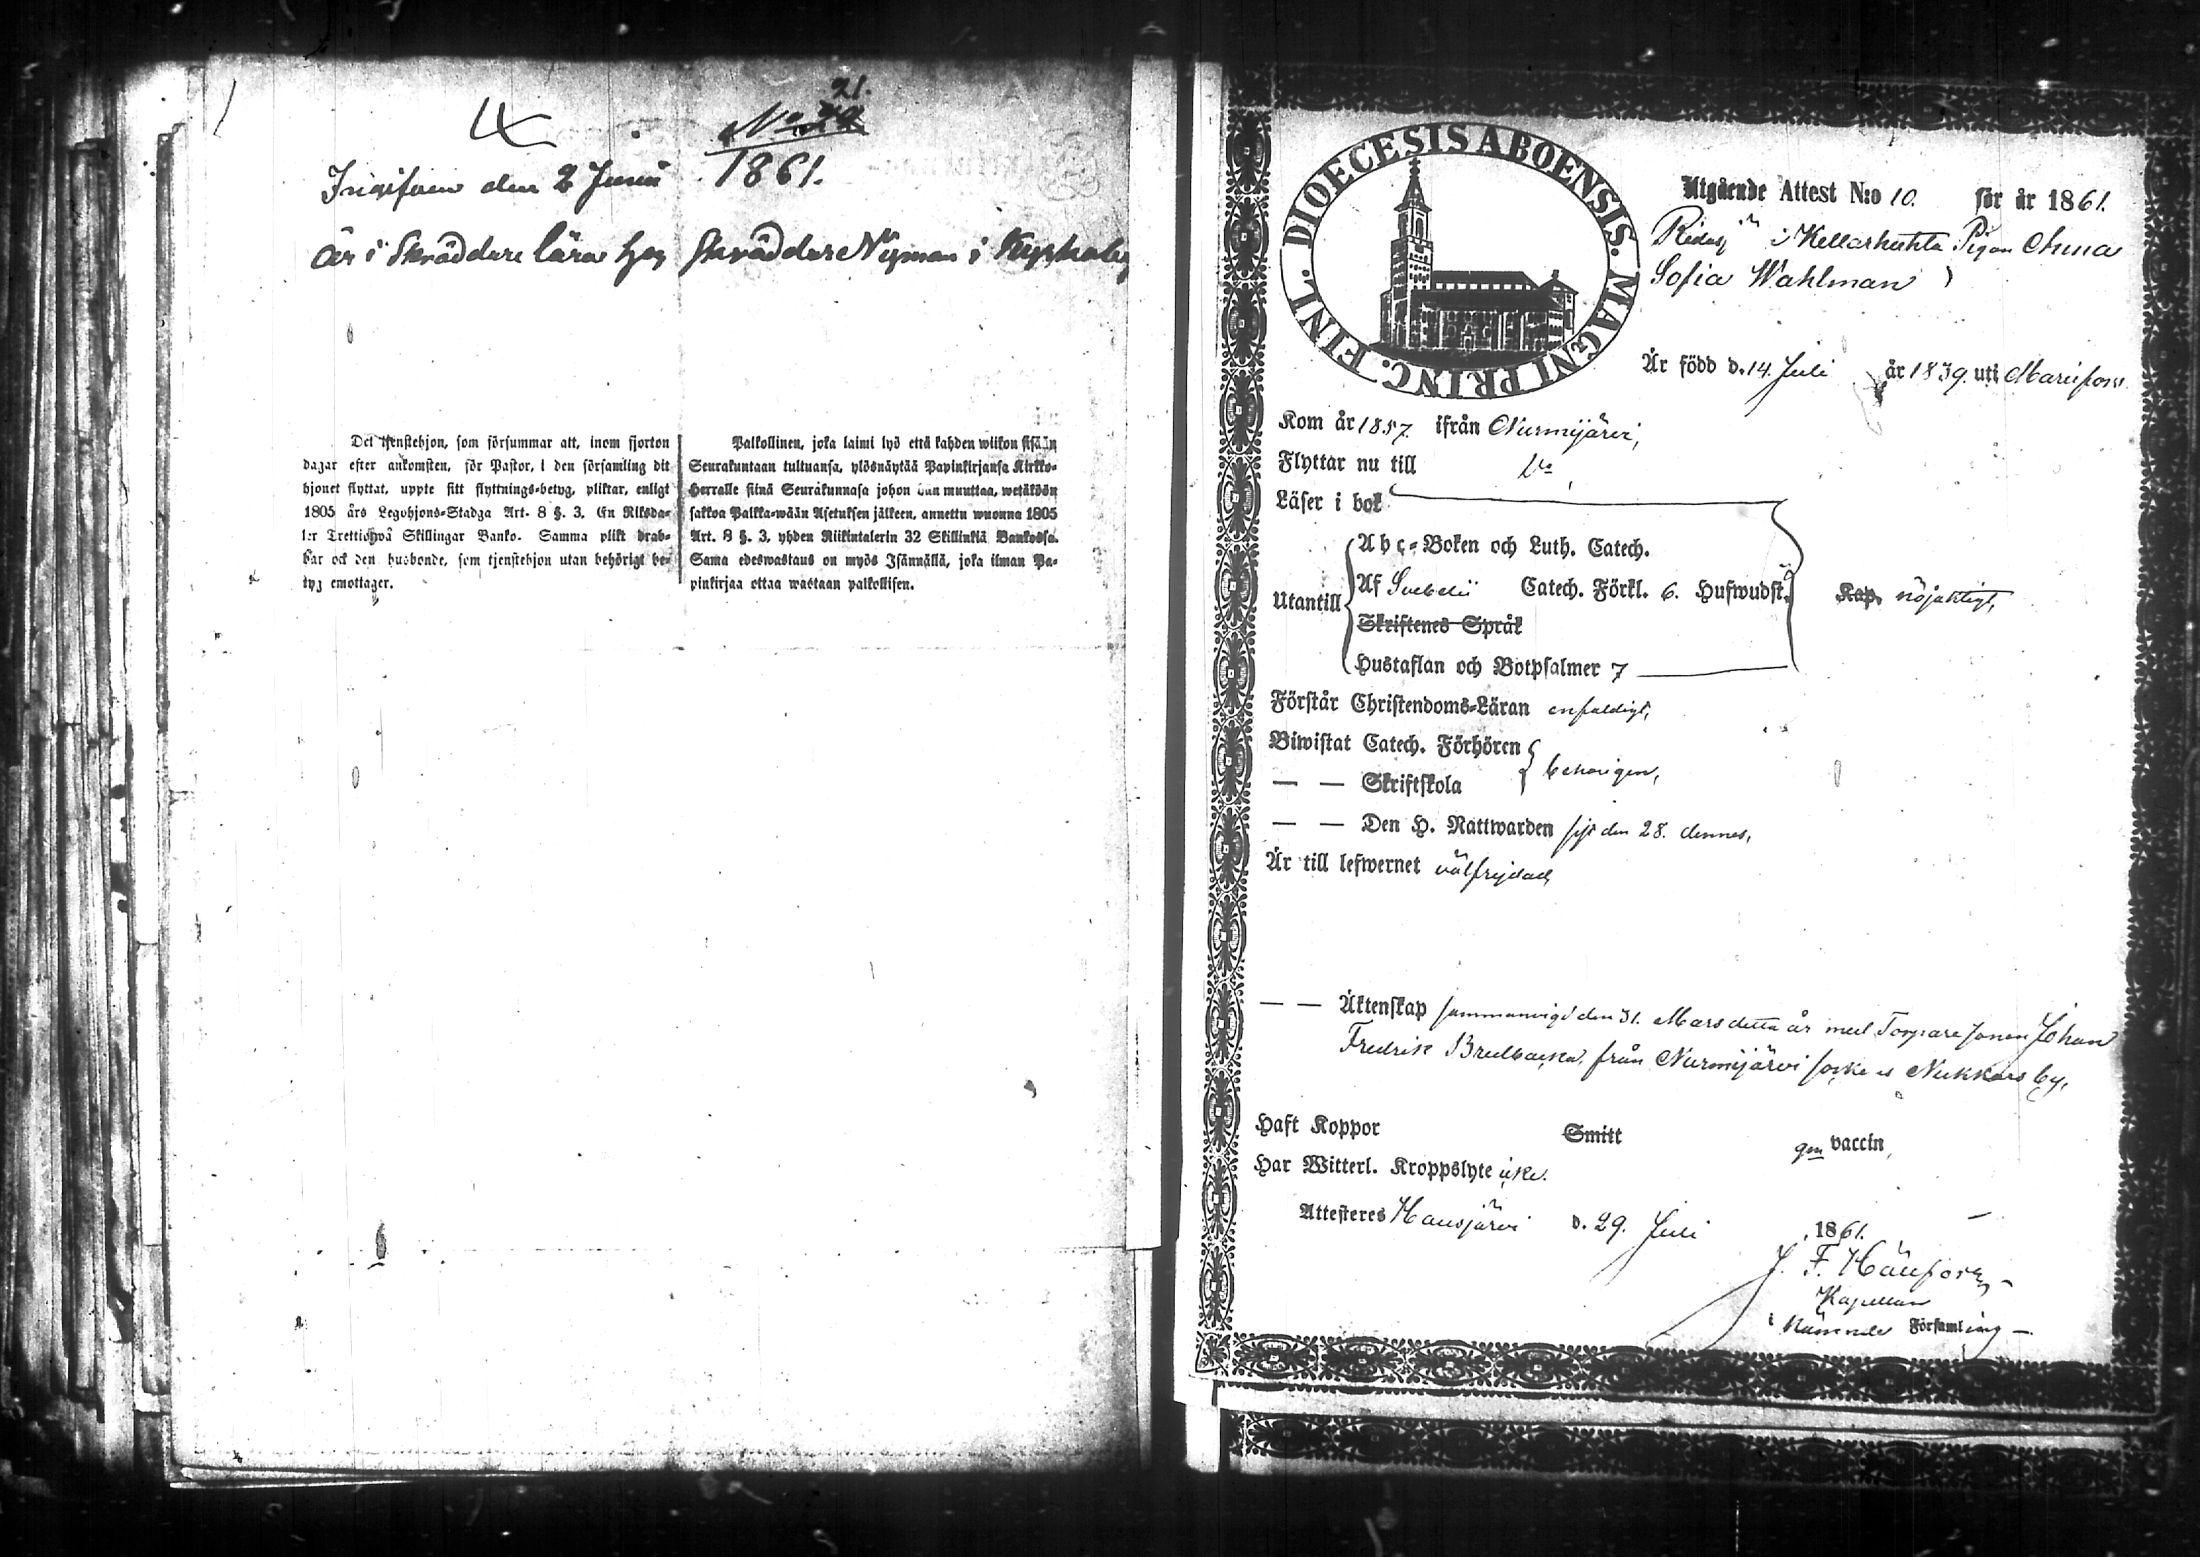 21.
No
1861.
den 2 Junii
är i Skräddare lära hos Skräddar Nyman i
Det tjenstehjon, som försummar att, inom fjorton
dagar efter ankomsten, för Pastor, i den församling dit
hjonet flyttat, uppte sitt flyttnings-betyg, pliktar, enligt
1805 års Legohjons-Stadga Art. 8 §. 3. En Riksda-
ler Trettiotwå Skillingar Banko. Samma plikt drab-
bar ock den husbonde, som tjenstehjon utan behörigt be-
tyg emottager.
Palkollinen, joka laimi lyö että kahden wiikon sisään
Seurakuntaan tultuansa, ylösnäytää Papinkirjansa Kirkko-
Herralle siinä Seurakunnasa johon hän muuttaa, wetäköön
sakkoa Palkka-wään Asetuksen jälkeen, annettu wuonna 1805
Art. 8 §. 3, yhden Riikintalerin 32 Skillinkiä Bankossa.
Sama edeswastaus on myös Isännällä, joka ilman Pa-
pinkirjaa ottaa wastaan palkollisen.
DIOECESIS ABOENSIS. MAGNI PRINC. FINL.
Utgående Attest N:o 10. för år 1861.
i Kellarhuhta Pigan Anna
Sofia Wahlman
Är född d. 14. Juli år 1839. uti
Kom år 1857. ifrån Nurmijärvi,
Flyttar nu till Do
Läser i bok
Utantill
Abc-Boken och Luth. Catech.
Af Svebelii Catech. Förkl. 6. Hufwudst. Kap. nöjaktigt,
Skriftenes Språk
Hustaflan och Botpsalmer 7
Förstår Christendoms-Läran enfaldigt,
Biwistat Catech. Förhören
— — Skriftskola behörigen,
— — Den H. Nattwarden sist den 28. dennes,
Är till lefwernet välfrejdad,
— — Äktenskap sammanvigd den 31. Mars detta år med Torpare sonen Johan
Fredrik från Nurmijärvi socken Nukkars by,
Haft Koppor Smitt gm vaccin,
Har Witterl. Kroppslyte icke.
Attesteres Hausjärvi d. 29. Juli 1861.
J. F.
Kapellan
i Församling